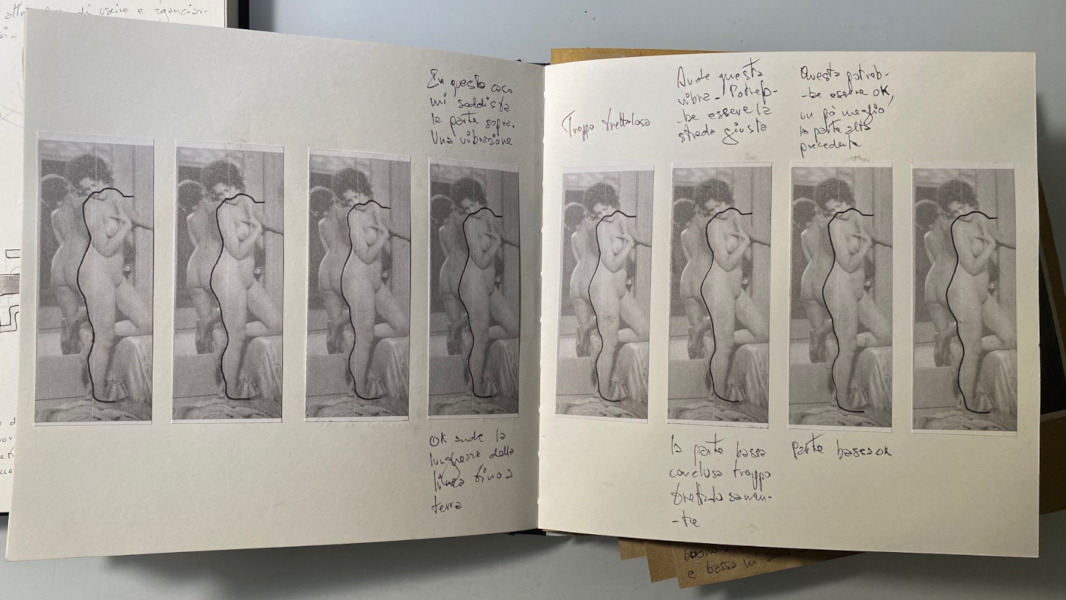 In questo caso
mi soddisfa
la parte sopra.
Una vibrazione
OK anche la
lunghezza della
linea fino a
terra
Troppo frettolosa
Anche questa
vibra. Potreb-
-be essere la
strada giusta
Questa potreb-
-be essere OK,
un pò meglio
la parte alta
precedente
la parte bassa
conclusa troppo
frettolosamen-
-te
parte bassa OK
e bassa mi